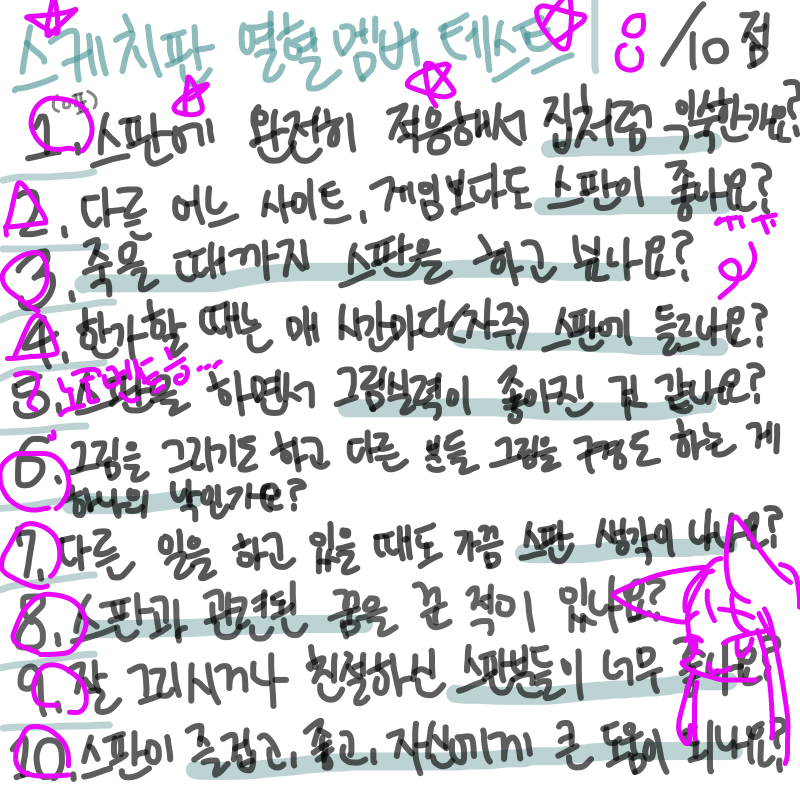 스케치판 열혈멤버테스트 8/10점
(스판)
1. 스판에 완전히 적응해서 집처럼 익숙한가요?
2. 다른 어느 사이트, 게임보다도 스판이 좋나요?
ㅠㅠ
3. 죽을 때까지 스판을 하고 싶나요?
4. 한가할 때는 매 시간마다(자주) 스판에 들르나요?
노코멘트...
5. 스판을 하면서 그림실력이 좋아진 것 같나요?
6. 그림을 그리기도 하고 다른 분들 그림을 구경도 하는 게
하나의 낙인가요?
7. 다른 일을 하고 있을 때도 가끔 스판 생각이 나나요?
8. 스판과 관련된 꿈을 꾼 적이 있나요?
9. 잘 그리시거나 친절하신 스판분들이 너무 좋나요?
10. 스판이 즐겁고, 좋고, 자신에게 큰 도움이 되나요?